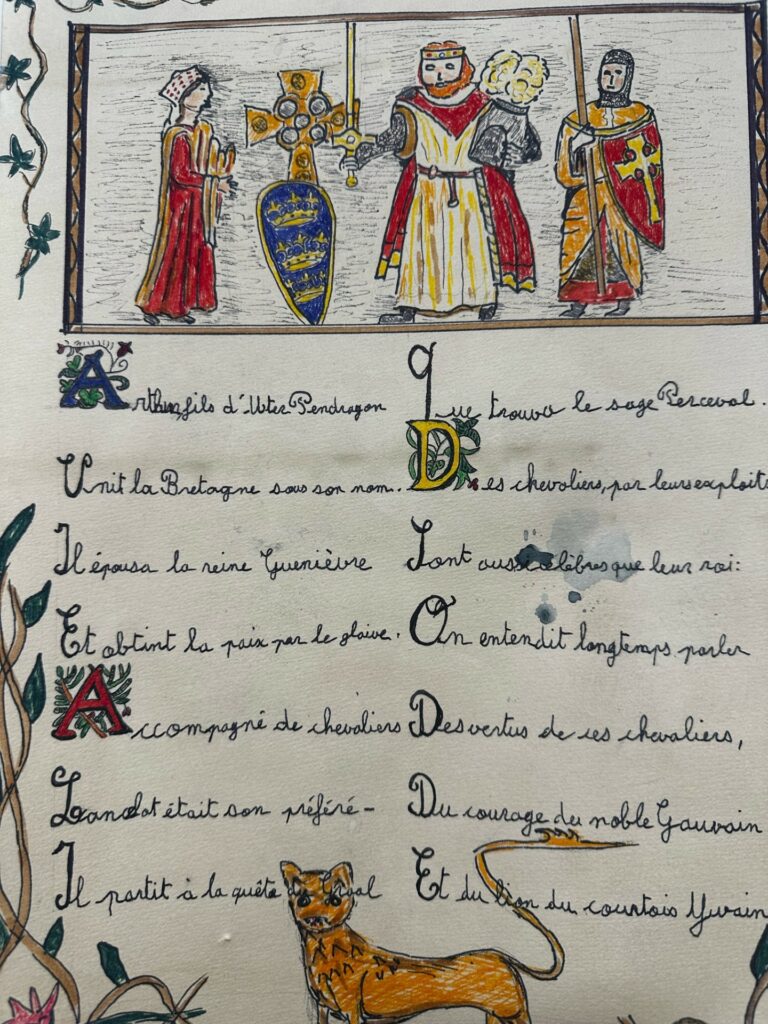 Arthur, fils d'Uter Pendragon
Unit la Bretagne sous son nom.
Il épousa la reine Guenièvre
Et obtint la paix par le glaive.
Accompagné de chevaliers
Lancelot était son préféré -
Il partit à la quête du Graal
que trouva le sage Perceval.
Des chevaliers, par leurs exploits
Sont aussi célèbres que leur roi:
On entendit longtemps parler
Des vertus de ces chevaliers,
Du courage du noble Gauvain
Et du lion du courtois Yvain